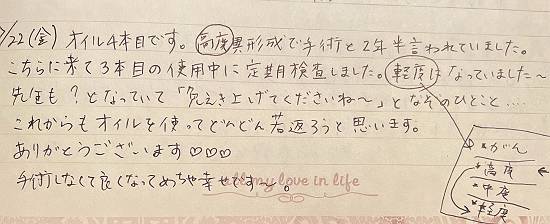 /22(金) オイル4本目です。高度異形成で手術と2年半言われていました。
こちらに来て3本目の使用中に定期検査しました。軽度になっていました～
先生も?となっていて「免えき上げてくださいね～」となぞのひとこと....
これからもオイルを使ってどんどん若返ろうと思います。
ありがとうございます♡♡♡
手術しなくて良くなってめちゃ幸せです～。
all my love in life
*がん
*高度
*中度
*軽度